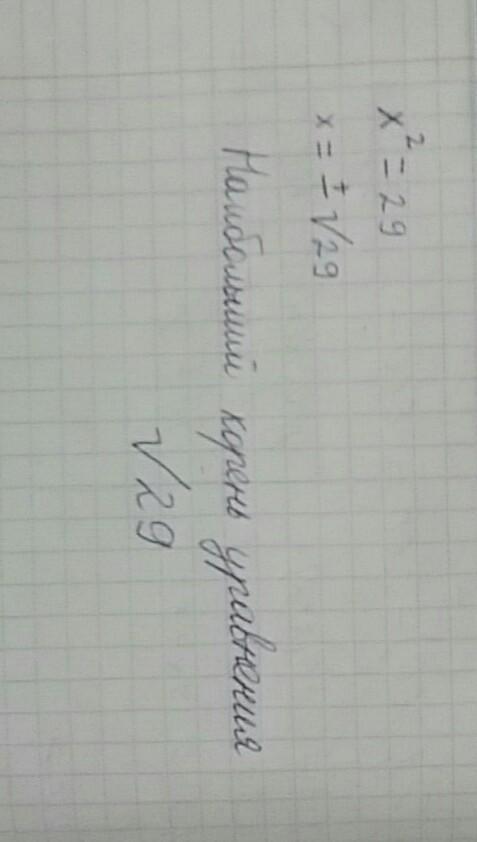 x² = 29
x = ±√29
Наибольший корень уравнения
√29